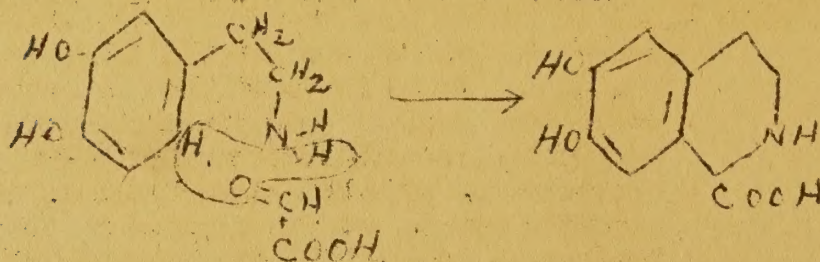 CH2
HO
CH2
HO
H
N-H
H
O=CH
COOH
HO
HO
NH
COOH